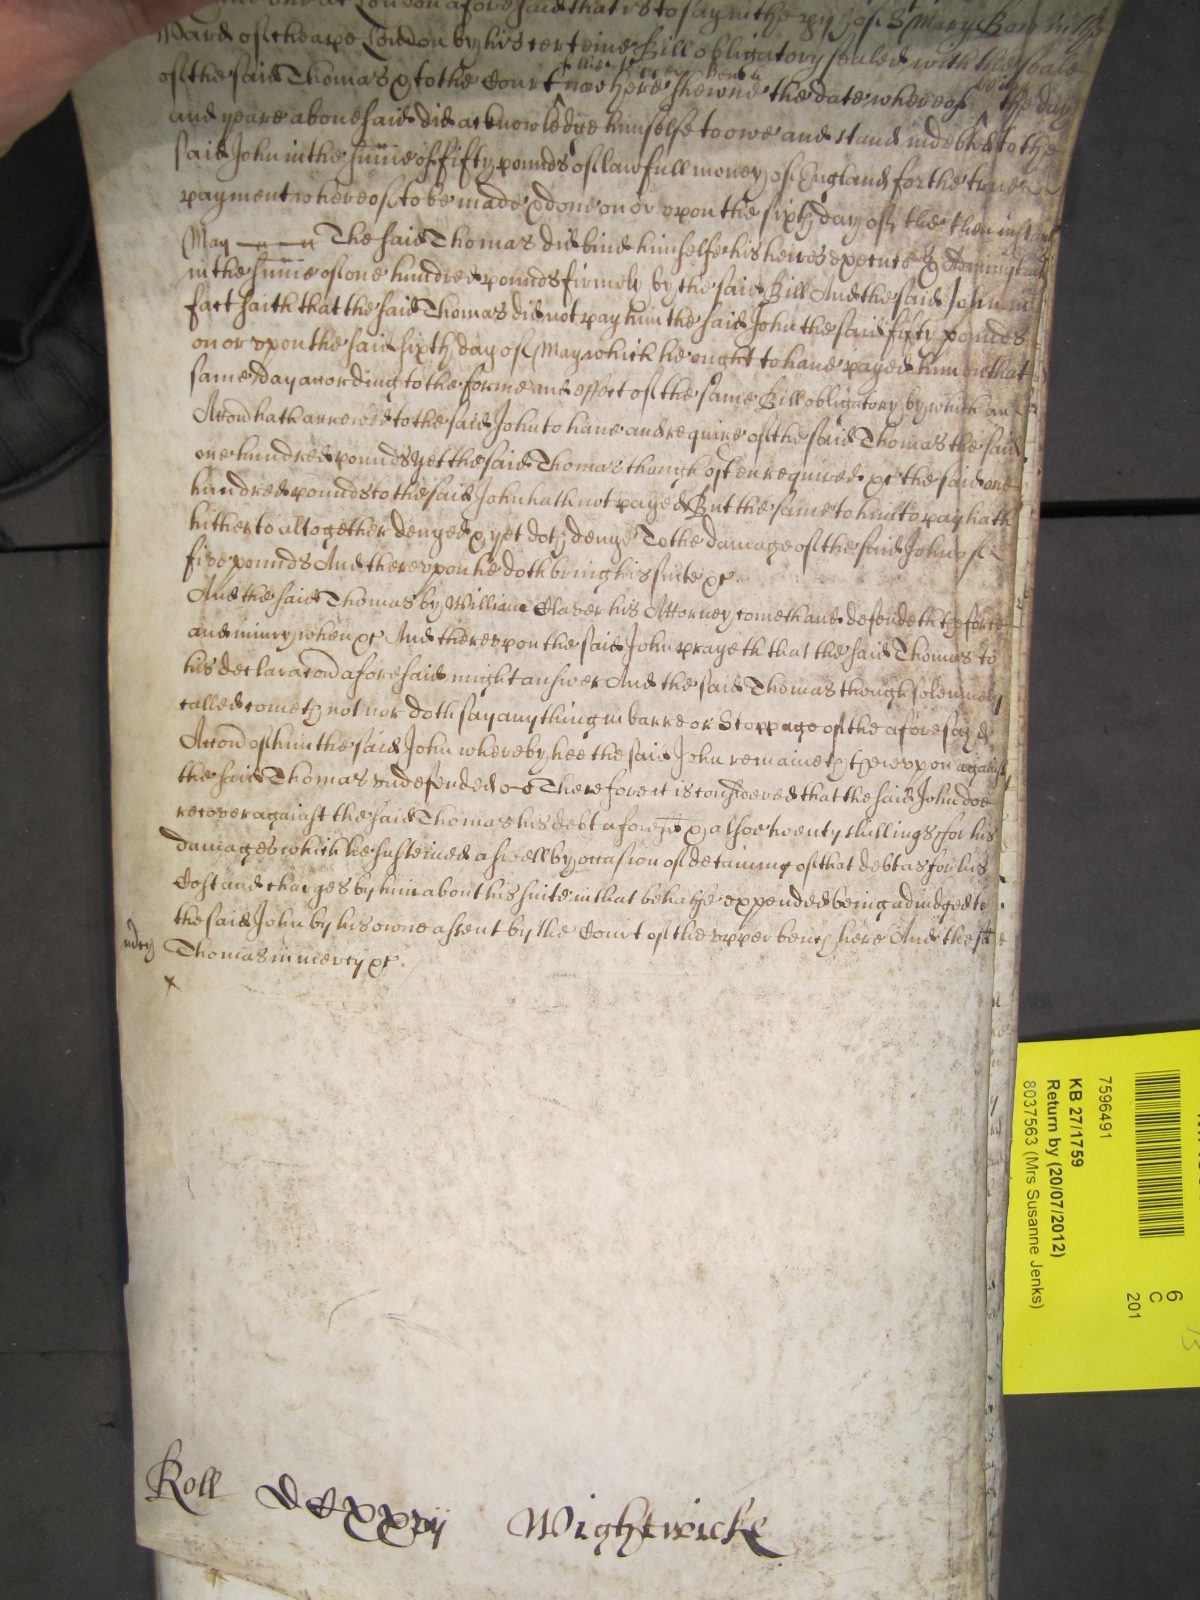 one at London aforesaid that is to say in the pish of S Mary Bow in the
Ward of Cheape London by his certeine Bill obligatory sealed with the seale
of the said Thomas & to the Court now here shewne the date whereof is the day
and yeare abovesaid did acknowledge himselfe to owe and stand indebted to the
said John in the sume of fifty pounds of lawfull money of England for the true
payment whereof to be made & done on or upon the sixth day of the then instant
May The said Thomas did bind himselfe his heires execut & Administrat
in the sume of one hundred pounds firmely by the said Bill And the said John in
fact saith that the said Thomas did not pay him the said John the said fifty pounds
on or vpon the said sixth day of May which he ought to have payed him on that
same day according to the forme and effect of the same Bill obligatory by which an
Accon hath accrewed to the said John to have and require of the said Thomas the said
one hundred pounds yet the said Thomas though often required &c the said one
hundred pounds to the said John hath not payed But the same to him to pay hath
hitherto altogether denyed & yet doth denye To the damage of the said John of
five pounds And therevpon he doth bring his suite &c.
And the said Thomas by William Claser his Attorney cometh and defendeth the force
and iniury when &c And therevpon the said John prayeth that the said Thomas to
his declaracon aforesaid might answer And the said Thomas though solemnely
called cometh not nor doth say any thing in barre or Stoppage of the aforesayd
Accon of him the said John whereby hee the said John remaineth therevpon against
the said Thomas vndefended Therefore it is considered that the said John doe
recover against the said Thomas his debt aforesd & alsoe twenty shillings for his
damages which he susteined aswell by occasion of detaining of that debt as for his
Cost and charges by him about his suite in that behalfe expended being adiudged to
the said John by his owne assent by the Court of the vpper bench here And the sd
mercy Thomas in mercy &c.
x
Roll DCxxvij Wightwicke
7596491
KB 27/1759
Return by (20/07/2012)
8037563 (Mrs Susanne Jenks)
6
C
201